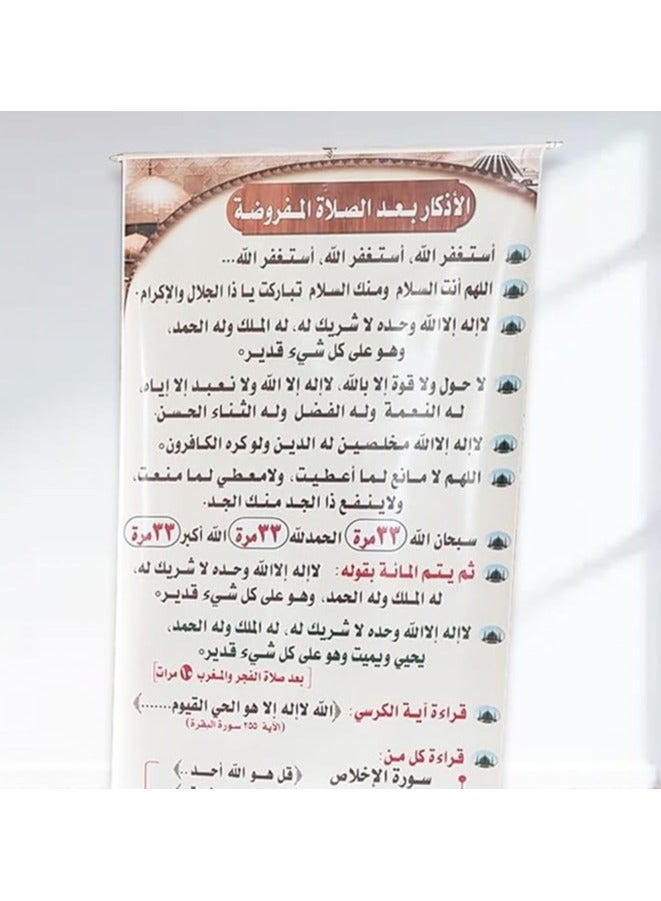 الأذكار بعد الصلاة المفروضة
أستغفر الله، أستغفر الله، أستغفر الله...
اللهم أنت السلام ومنك السلام تباركت يا ذا الجلال والإكرام.
لاإله إلا الله وحده لا شريك له، له الملك وله الحمد،
وهو على كل شيء قدير
لا حول ولا قوة إلا بالله، لاإله إلا الله ولا نعبد إلا إياه،
له النعمة وله الفضل وله الثناء الحسن.
لاإله إلا الله مخلصين له الدين ولو كره الكافرون
اللهم لا مانع لما أعطيت، ولا معطي لما منعت،
ولا ينفع ذا الجد منك الجد.
سبحان الله ٣٣ مرة الحمدلله ٣٣ مرة الله أكبر ٣٣ مرة
ثم يتم المائة بقوله: لاإله إلا الله وحده لا شريك له،
له الملك وله الحمد، وهو على كل شيء قدير
لاإله إلا الله وحده لا شريك له، له الملك وله الحمد،
يحيي ويميت وهو على كل شيء قدير
[بعد صلاة الفجر والمغرب ١٠ مرات]
قراءة آية الكرسي: ﴿الله لاإله إلا هو الحي القيوم.......﴾
(الآية ٢٥٥ سورة البقرة)
قراءة كل من:
سورة الإخلاص ﴿قل هو الله أحد..﴾